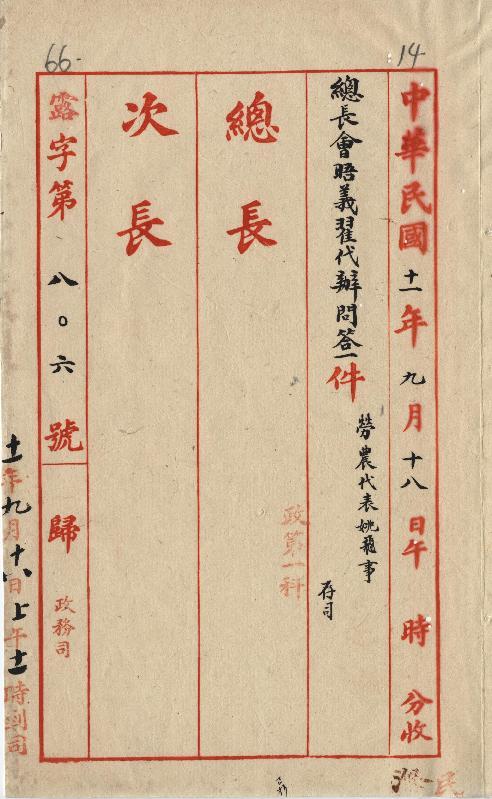 66-
14
中華民國十一年九月十八日午時分收
總長會晤義翟代辦問答一件
勞農代表姚飛事
存司
政第一科
總長
次長
露字第八〇六號歸政務司
十一年九月十八日上午十一時到司